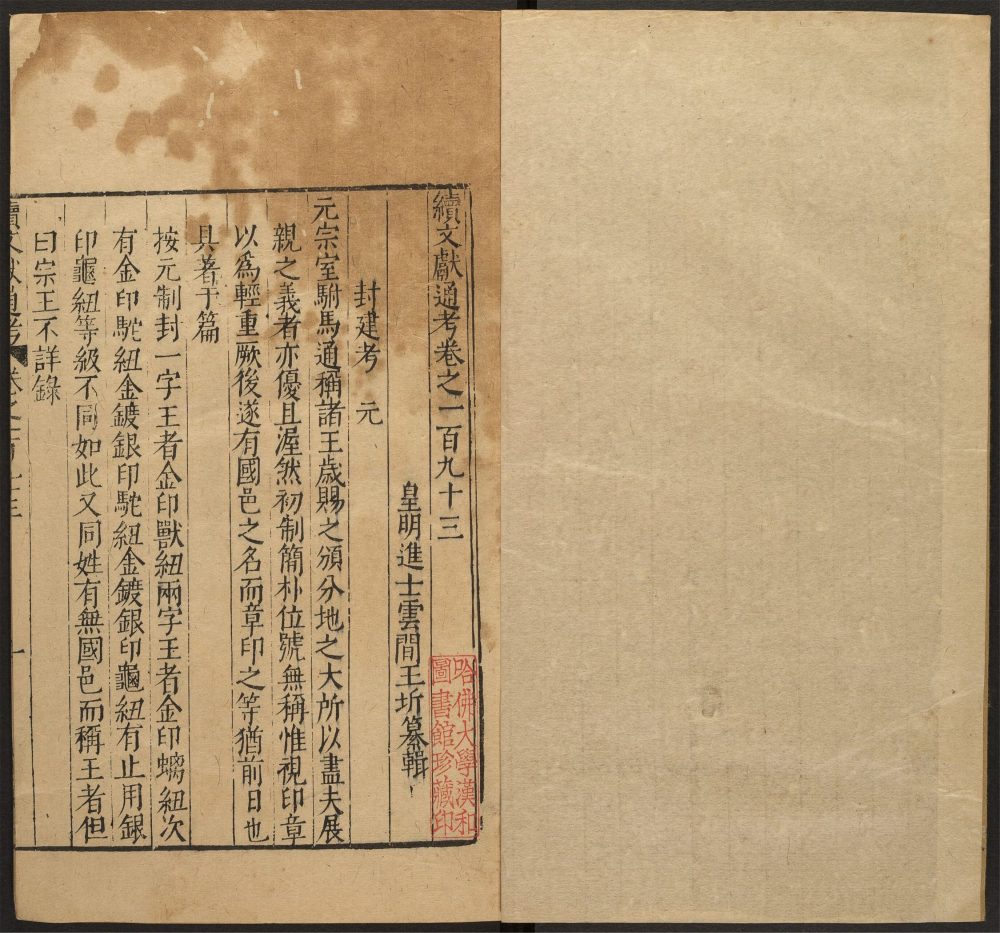 續文獻通考卷之一百九十三
皇明進士雲間王圻纂輯
封建考 元
元宗室駙馬通稱諸王歲賜之頒分地之大所以盡夫展
親之義者亦優且渥然初制簡朴位號無稱惟視印章
以爲輕重厥後遂有國邑之名而章印之等猶前日也
具著于篇
按元制封一字王者金印獸紐兩字王者金印螭紐次
有金印駝紐金鍍銀印駝紐金鍍銀印龜紐有止用銀
印龜紐等級不同如此又同姓有無國邑而稱王者但
曰宗王不詳錄
續文獻通考 卷之一百九十三 一
哈佛大學漢和
圖書館珍藏印